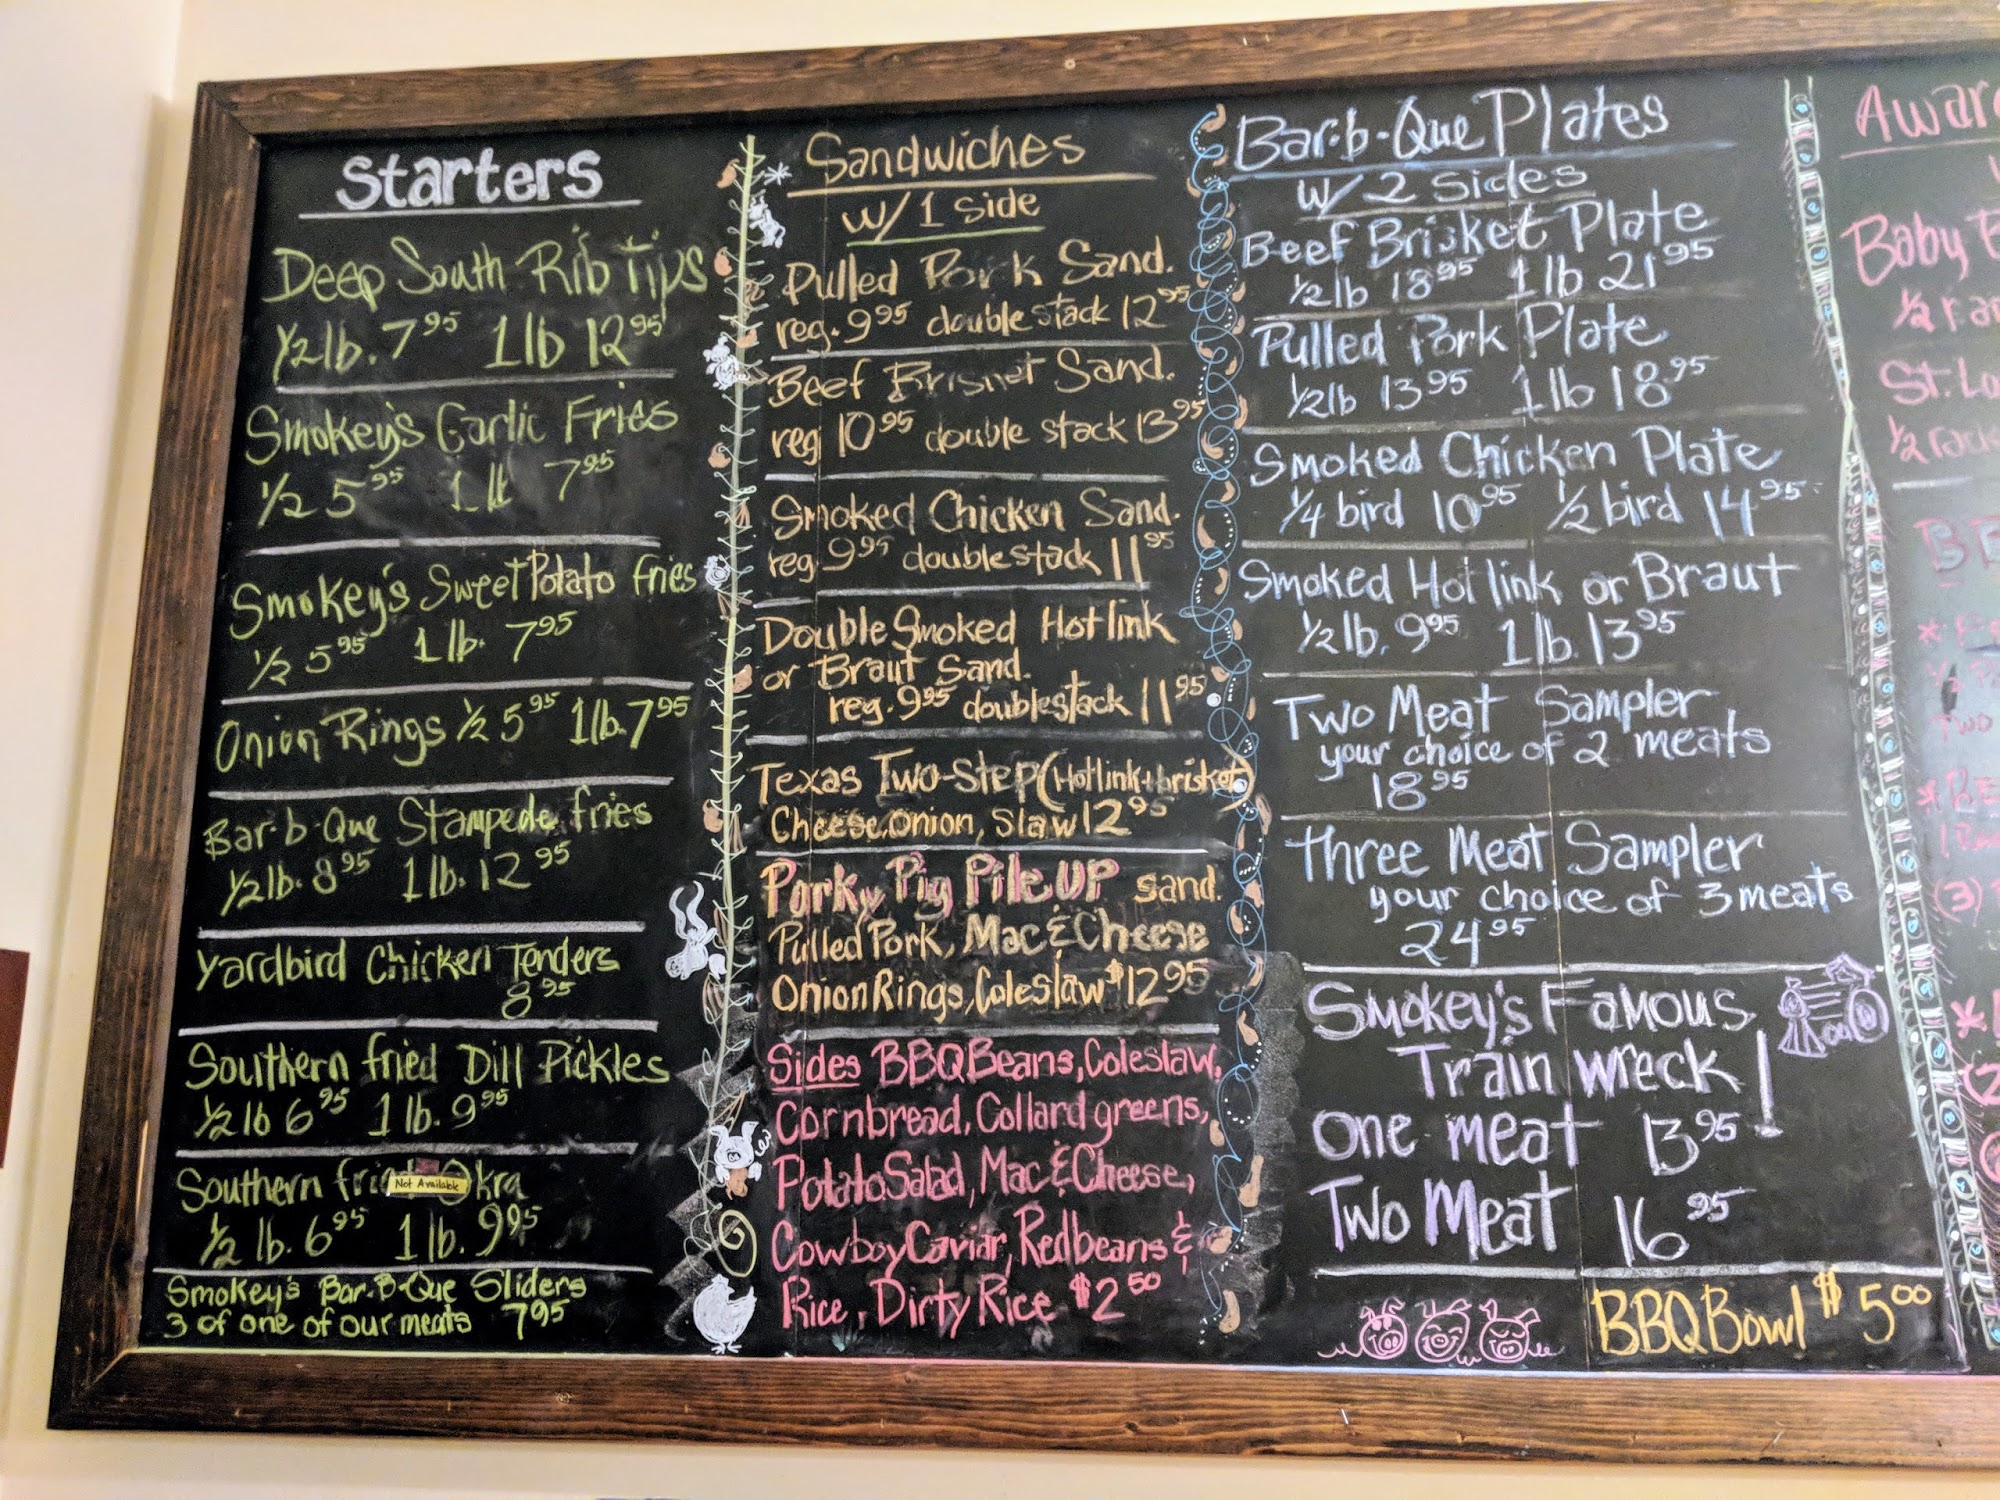 Starters
Deep South Rib Tips
1/2 lb. 7 95 1 lb 12 95
Smokey's Garlic Fries
1/2 5 95 1 lb 7 95
Smokey's Sweet Potato fries
1/2 5 95 1 lb. 7 95
Onion Rings 1/2 5 95 1 lb. 7 95
Bar-b-Que Stampede fries
1/2 lb. 8 95 1 lb. 12 95
Yardbird Chicken Tenders
8 95
Southern fried Dill Pickles
1/2 lb 6 95 1 lb. 9 95
Southern fried Okra
Not Available
1/2 lb. 6 95 1 lb. 9 95
Smokey's Bar-B-Que Sliders
3 of one of our meats 7 95
Sandwiches
w/ 1 side
Pulled Pork Sand.
reg. 9 95 double stack 12 95
Beef Brisket Sand.
reg 10 95 double stack 13 95
Smoked Chicken Sand.
reg 9 95 double stack 11 95
Double Smoked Hot link
or Braut Sand.
reg. 9 95 double stack 11 95
Texas Two-Step (Hot link + brisket)
Cheese, Onion, Slaw 12 95
Porky Pig Pile UP sand.
Pulled Pork, Mac & Cheese
Onion Rings, Coleslaw $12 95
Sides BBQ Beans, Coleslaw,
Cornbread, Collard greens,
Potato Salad, Mac & Cheese,
Cowboy Caviar, Red beans &
Rice, Dirty Rice $2 50
Bar-b-Que Plates
w/ 2 sides
Beef Brisket Plate
1/2 lb 18 95 1 lb 21 95
Pulled Pork Plate
1/2 lb 13 95 1 lb 18 95
Smoked Chicken Plate
1/4 bird 10 95 1/2 bird 14 95
Smoked Hot link or Braut
1/2 lb. 9 95 1 lb. 13 95
Two Meat Sampler
your choice of 2 meats
18 95
Three Meat Sampler
your choice of 3 meats
24 95
Smokey's Famous
Train wreck!
One meat 13 95
Two Meat 16 95
BBQ Bowl $5 00
Baby
1/2
St.
1/2
Two
(3)